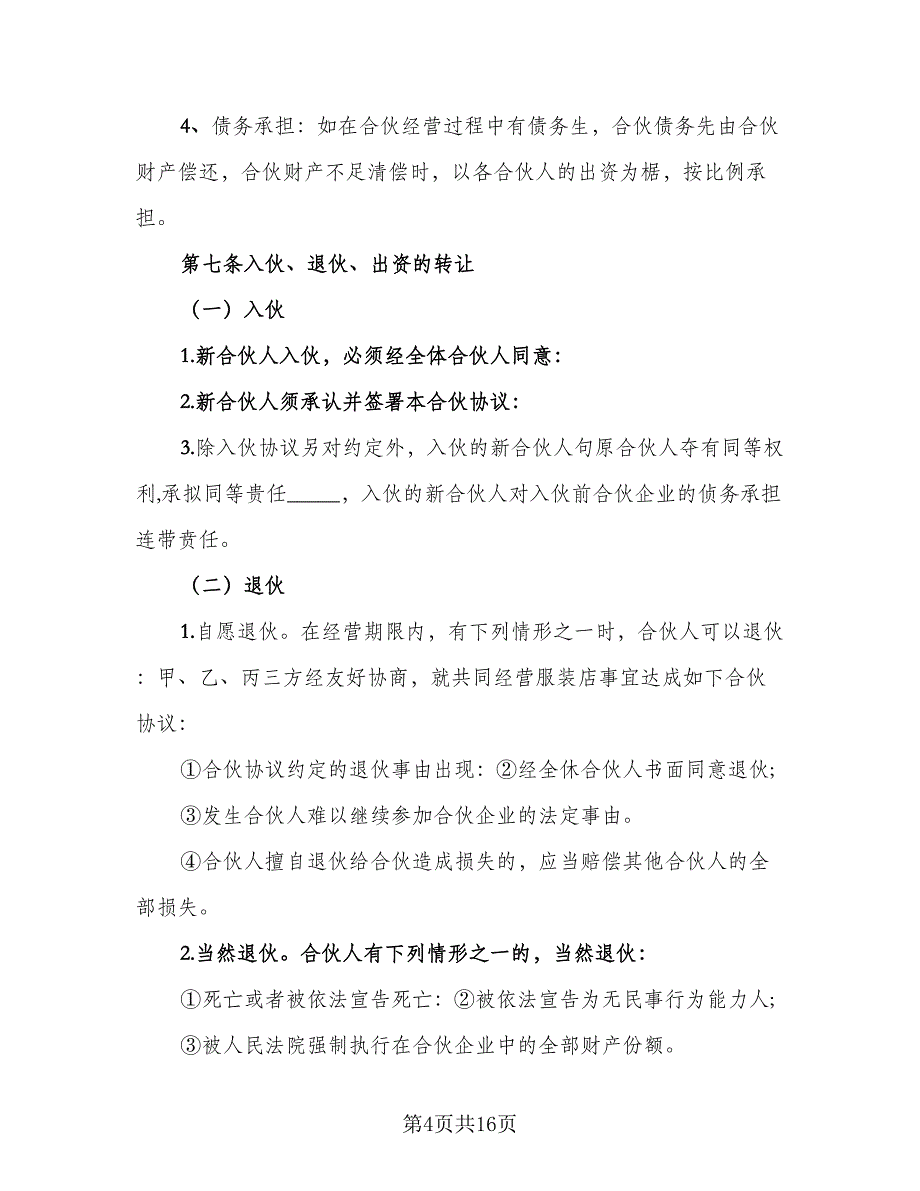 4、债务承担：如在合伙经营过程中有债务生，合伙债务先由合伙
财产偿还，合伙财产不足清偿时，以各合伙人的出资为椐，按比例承
担。
第七条入伙、退伙、出资的转让
（一）入伙
1.新合伙人入伙，必须经全体合伙人同意：
2.新合伙人须承认并签署本合伙协议：
3.除入伙协议另对约定外，入伙的新合伙人句原合伙人夺有同等权
利,承拟同等贵任_____，入伙的新合伙人对入伙前合伙企业的侦务承担
连带贲任。
（二）退伙
1.自愿退伙。在经营期限内，有下列情形之一时，合伙人可以退伙
：甲、乙、丙三方经友好协商，就共同经营服装店事宜达成如下合伙
协议：
①合伙协议约定的退伙事由出现：②经全休合伙人书面同意退伙;
③发生合伙人难以继续参加合伙企业的法定事由。
④合伙人擅自退伙给合伙造成损失的，应当赔偿其他合伙人的全
部损失。
2.当然退伙。合伙人有下列情形之一的，当然退伙：
①死亡或者被依法宣告死亡：②被依法宣告为无民事行为能力人;
③被人民法院强制执行在合伙企业中的全部财产份额。
第4页共16页